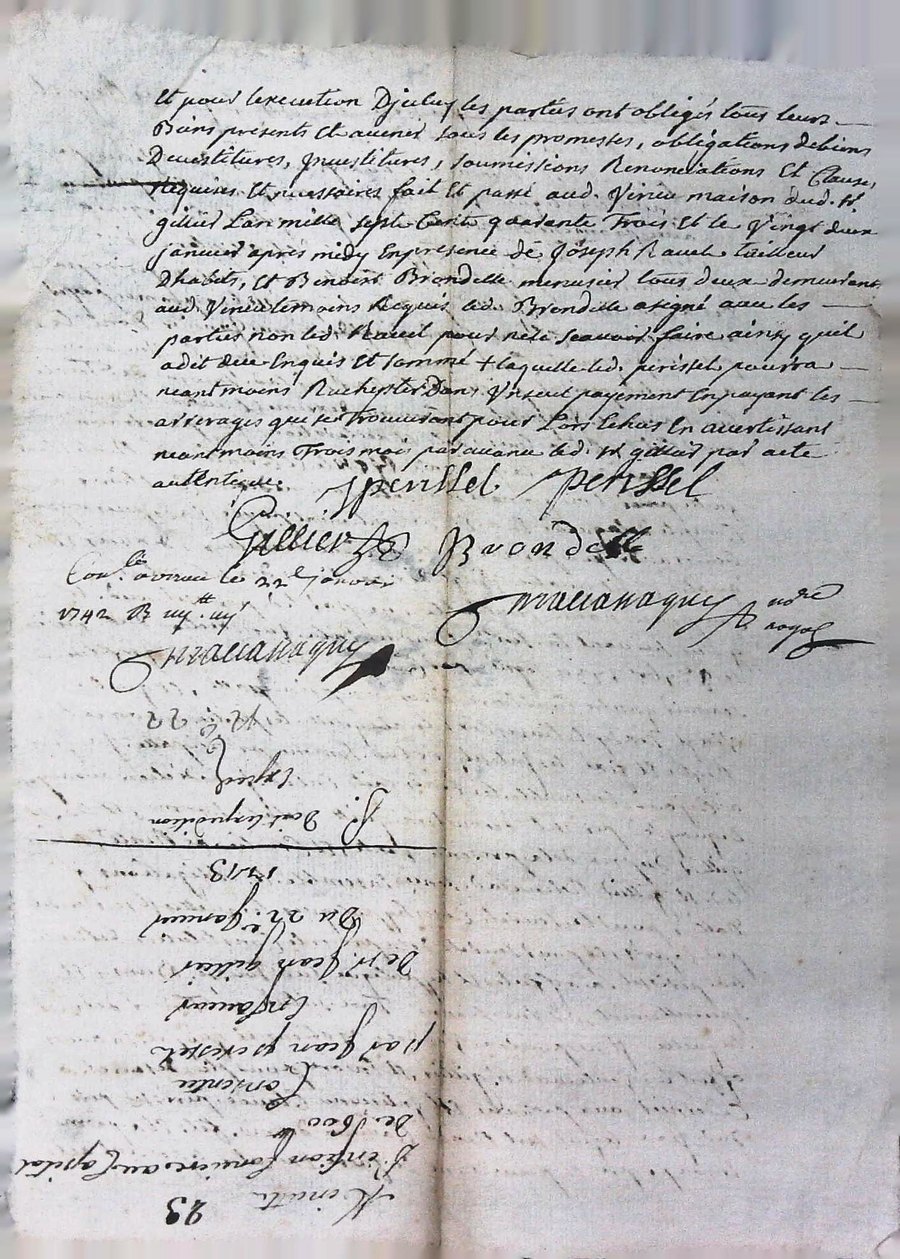 Et pour lexecution Djceluy les parties ont obligés tous leurs
Biens présents Et avenir sous les promesses, obligations de biens
Devestitures, Jnvestitures, soumissions Renonciations Et Clauses
Requises Et necessaires fait Et passé aud. Virieu maison dud. sr
gillier Lan mille sept Cents quarante Trois Et le Vingt deux
janvier apres midy En presence de Joseph Ravet tailleur
Dhabits, Et Benoist Brondelle menusier tous deux demeurant
aud Virieu temoins Requis led. Brondelle a signé avec les
parties non led. Ravet pour ne le sçavoir faire ainsy quil
a dit de ce Enquis Et sommé + laquelle led. perissel pourra
neant moins Rachepter Dans Un seul payement En payant les
arrerages qui se Trouveront pour Lors Echus En avertissant
neant moins Trois mois par avance led. sr gillier par acte
autentique.
Jperissel perissel
Gillier Brondelle
Conlé a virieu le 22e janvier
1742 R
nore
royal
N.e 22
Expedié
Dont Expedition
1743
Du 22e. Janvier
De sr. Jean gillier
En faveur
par Jean perissel
Consentie
de 1600 lt
Pension fonciere au Capital
Minute
23